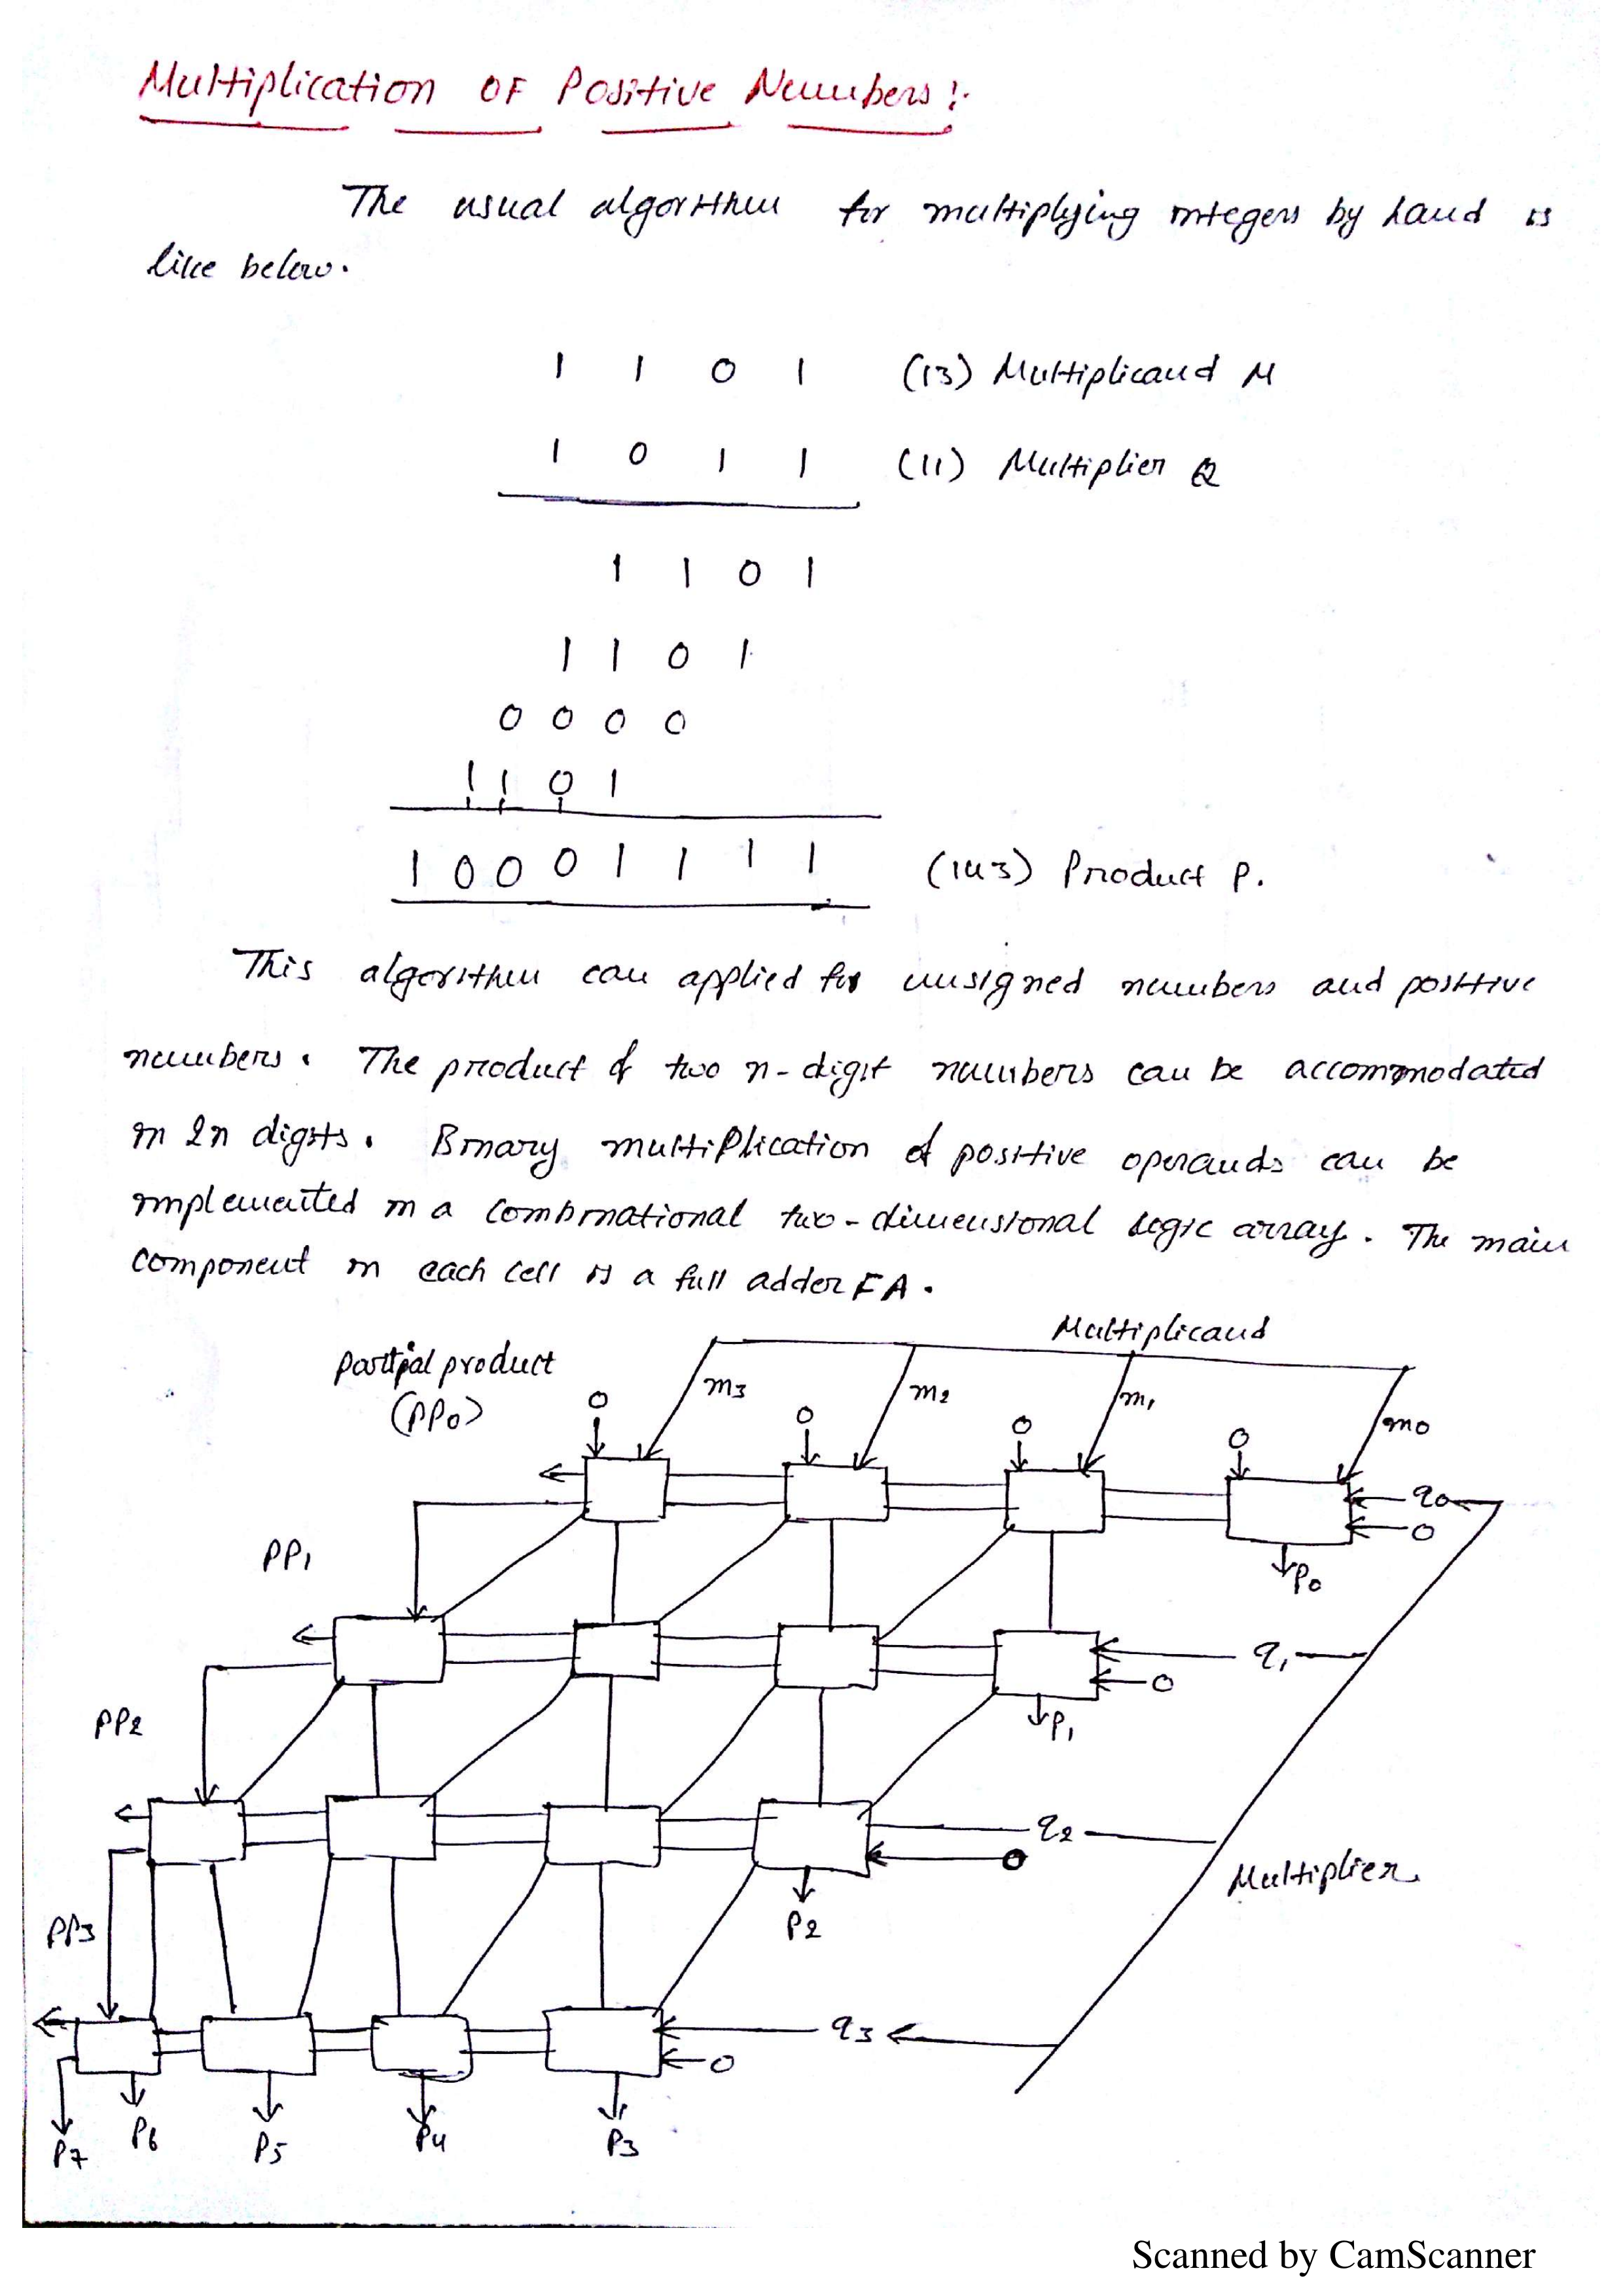 Multiplication OF Positive Numbers :-
The usual algorithm for multiplying integers by hand is
like below.
1 1 0 1 (13) Multiplicand M
1 0 1 1 (11) Multiplier Q
1 1 0 1
1 1 0 1
0 0 0 0
1 1 0 1
1 0 0 0 1 1 1 1 (143) Product P.
This algorithm can applied for unsigned numbers and positive
numbers. The product of two n-digit numbers can be accommodated
in 2n digits. Binary multiplication of positive operands can be
implemented in a combinational two-dimensional logic array. The main
component in each cell is a full adder FA.
Multiplicand
Partial product
(PP0)
0 m3 0 m2 0 m1 0 m0
q0
0
PP1
P0
q1
0
PP2
P1
q2
0
Multiplier
PP3
P2
q3
0
P7 P6 P5 P4 P3
Scanned by CamScanner